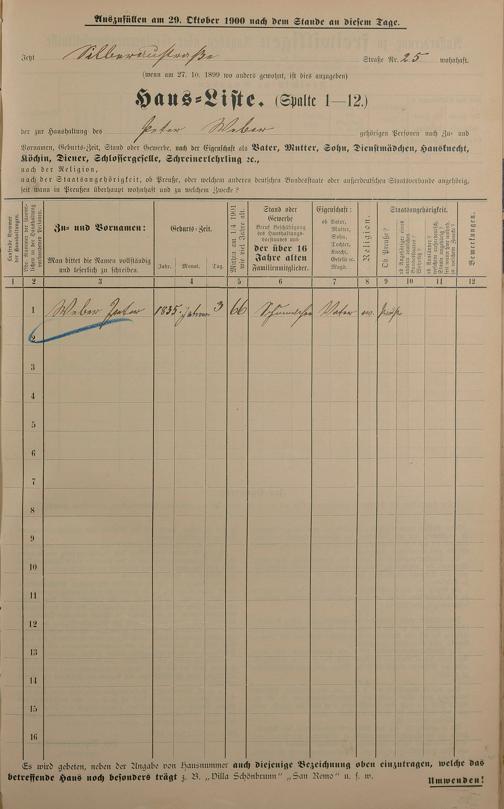 Auszufüllen am 29. Oktober 1900 nach dem Stande an diesem Tage.
Jetzt Silberaustraße Straße Nr. 25 wohnhaft.
(wenn am 27. 10. 1899 wo anders gewohnt, ist dies anzugeben)
Haus-Liste. (Spalte 1—12.)
der zur Haushaltung des Peter Weber gehörigen Personen nach Zu- und
Vornamen, Geburts-Zeit, Stand oder Gewerbe, nach der Eigenschaft als Vater, Mutter, Sohn, Dienstmädchen, Hausknecht,
Köchin, Diener, Schlossergeselle, Schreinerlehrling ec.,
nach der Religion,
nach der Staatsangehörigkeit, ob Preuße, oder welchem anderen deutschen Bundesstaate oder außerdeutschen Staatsverbande angehörig,
seit wann in Preußen überhaupt wohnhaft und zu welchem Zwecke?
Laufende Nummer der Haushaltungen.
Zu- und Vornamen:
Man bittet die Namen vollständig und leserlich zu schreiben.
Geburts-Zeit.
Jahr. Monat. Tag.
Mithin am 1.4.1901 wie viel Jahre alt.
Stand oder Gewerbe
der über 16 Jahre alten Familienmitglieder.
Eigenschaft:
ob Vater, Mutter, Sohn, Tochter, Knecht, Geselle ec. Magd.
Religion.
Staatsangehörigkeit.
Ob Preuße?
Bemerkungen.
1 2 3 4 5 6 7 8 9 10 11 12
1 Weber Peter 1835 Januar 3 66 Vater ev.
2
3
4
5
6
7
8
9
10
11
12
13
14
15
16
Es wird gebeten, neben der Angabe von Hausnummer auch diejenige Bezeichnung oben einzutragen, welche das
betreffende Haus noch besonders trägt z. B. „Villa Schönbrunn" „San Remo" u. s. w.
Umwenden!